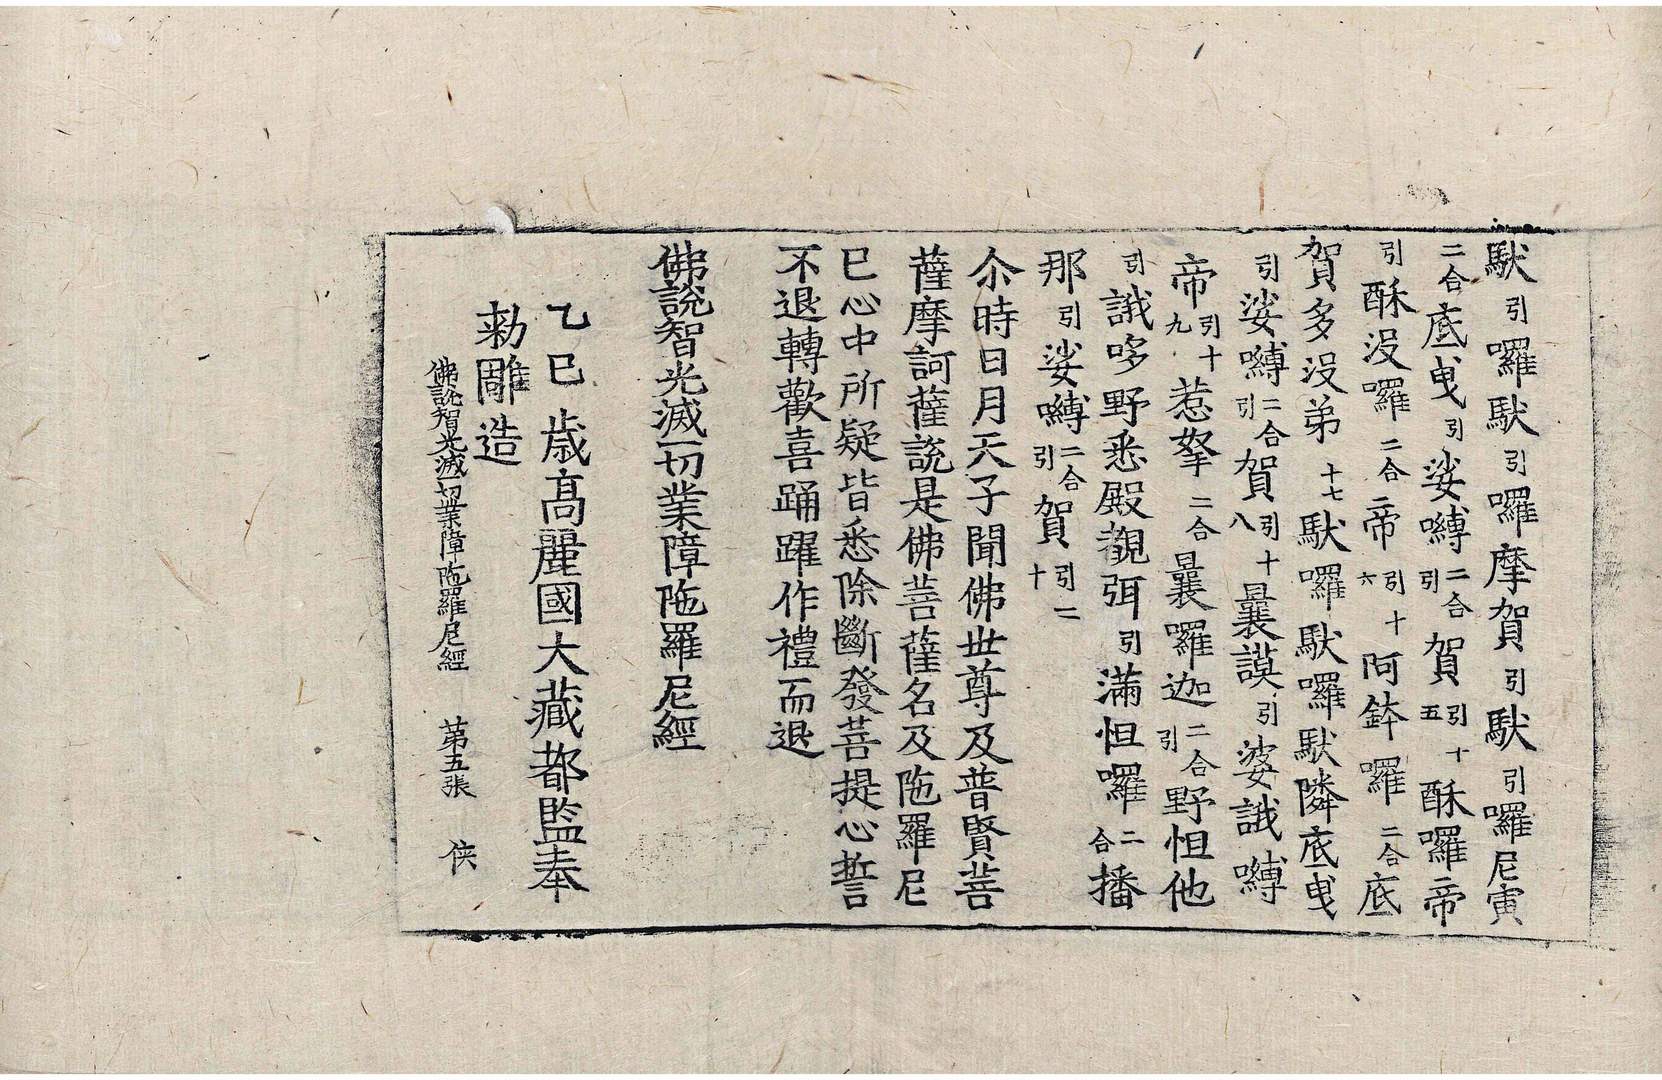 馱引囉馱引囉摩賀引馱引囉尼寅
二合底曳引娑嚩二合引賀引十五酥囉帝
引酥没囉二合帝引十六阿鉢囉二合底
賀多没弟十七馱囉馱囉馱隣底曳
引娑嚩二合引賀引十八曩謨引婆誐嚩
帝引十九惹拏二合曩囉迦二合引野怛他
引誐哆野悉殿覩弭引滿怛囉二合播
那引娑嚩二合引賀引二十
尒時日月天子聞佛世尊及普賢菩
薩摩訶薩說是佛菩薩名及陁羅尼
已心中所疑皆悉除斷發菩提心誓
不退轉歡喜踊躍作禮而退
佛說智光滅一切業障陁羅尼經
乙巳歳高麗國大藏都監奉
勅雕造
佛說智光滅一切業障陁羅尼經 第五張 俠